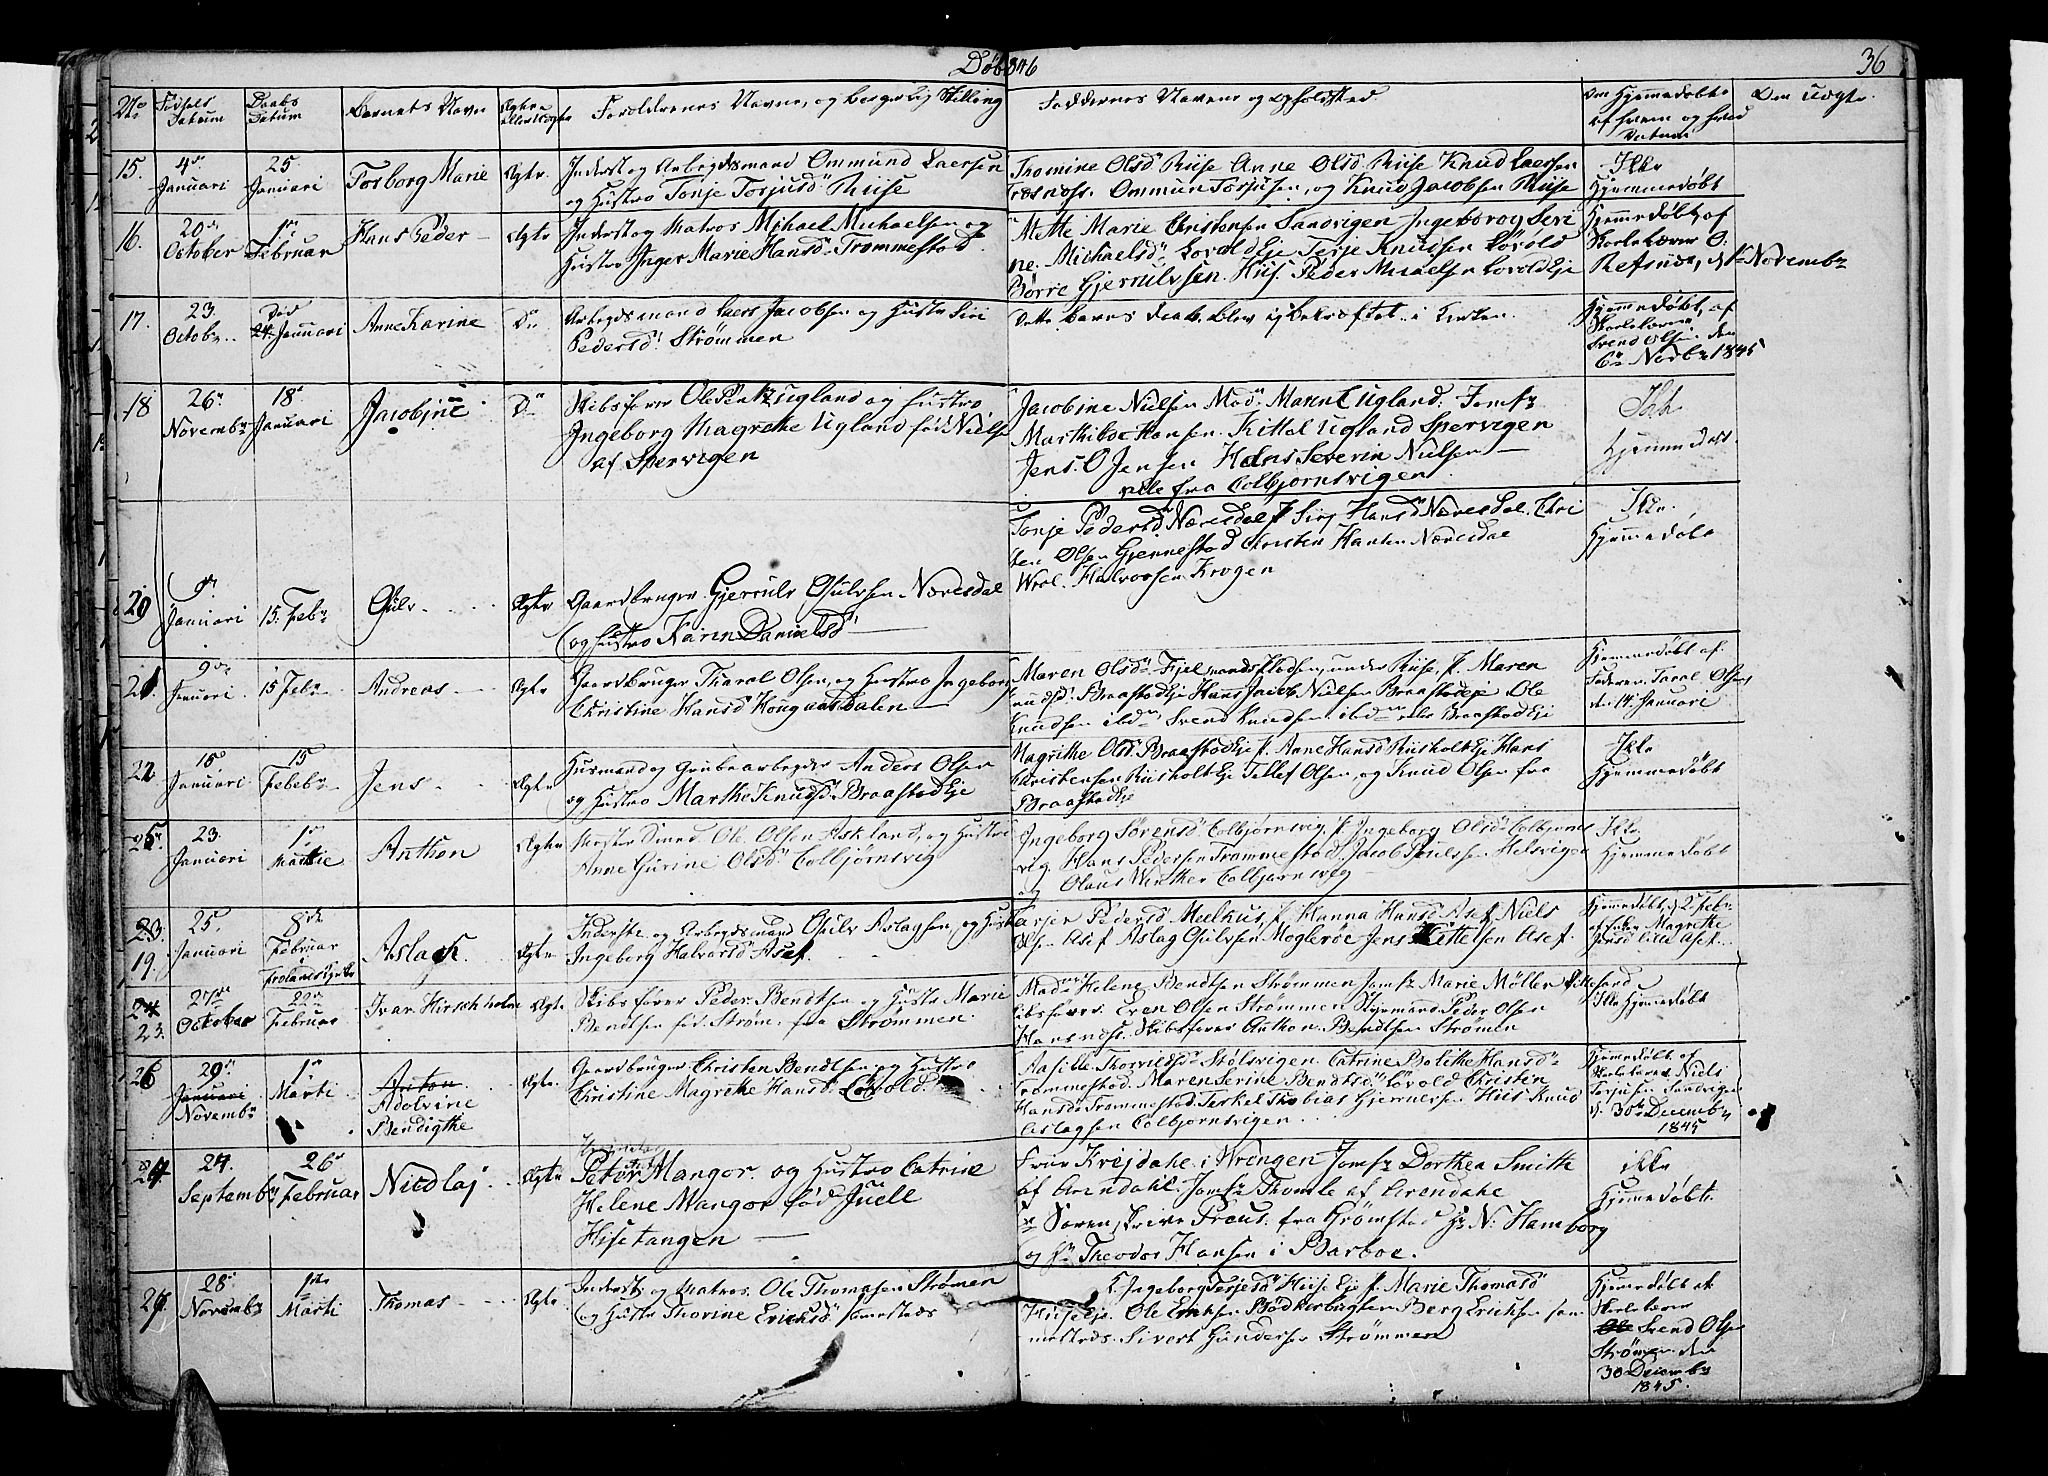 Døb 1846
36
No
Fødsels Datum
Daabs Datum
Barnets Navn
Ægte eller Uægte
Foreldrenes Navne, og borgerlig Stilling
Faddernes Navne og opholdsted.
Om Hjemmedøbt af hvem og hvad Datum
Om Uægte.
15.
4de Januari
25 Januari
Torborg Marie
Ægte.
Inderst og Arbeydsmand Ommund Laersen
og Hustro Tonje Torjusd Riise
Tromine Olsd Riise Anne Olsd Riise Knud Laersen
Ommun Torjusen, og Knud Jacobsen Riise
Ikke
Hjemmedøbt
16.
20de October
1ste Februar
Hans Peder
Ægte
Inderst og Matros Mihael Michaelsen og
Hustro Inger Marie Hansd. Trommestad.
Mette Marie Christensen Sandvigen Ingeborg Seri
ne. Michaelsd. Lovold Eje Terje Knudsen Lövold
Börre Gjerrulvsen. Hiis. Peder Micaelsen Lovold Eje
Hjemedøbt af
Skolelærer O.
Refsnes, d 1ste Novembr
17.
23. Octobr.
Død 24. Januari
Anne Karine
Do
Arbeydsmand Laers Jacobsen og Hustro Siri
Pedersd. Strømmen
Dette barns daab blev ej bekræftet i Kirken.
Hjemmedøbt, af
Skolelærer
Svend Olsen. den
6te Novbr 1845
18
26de Novembr
18de Januari
Jacobine
Do
Skibsfører Ole Ugland og Hustro
Ingeborg Magrethe Ugland fød Nielsen
af Spervigen
Jacobine Nielsen Mad. Maren Ugland. Jomfr
Marthilde Hansen. Kittel Ugland Spervigen
Jens. O Jensen Hans Severin Nielsen
alle fra Colbjornsvigen
Ikke
Hjemmedøbt.
20
9de Januari
15. Febr
Gulv
Ægte
Gaardbruger Gjerrulv Gulvsen Næresdal
og Hustro Karen Danielsd
Tonje Pedersd Næresdal p Sirj Hansd Næresdal. Chri
sten Olsen Gjennestad Christen Hansen Næresdal
Wrol. Halvorsen Krogen
Ikke
Hjemmedøbt
21.
9de Januari
15 Febr
Andreas
Ægte
Gaardbruger Tharal Olsen, og Hustro Ingeborg
Christine Hansd Hougaasdalen
Maren Olsd Fjelmandspladsen, under Riise, p. Maren
Knudsd. Braastad Eje Hans Jacob Nielsen Braastad Eje Ole
Knudsen ibdm Svend Knudsen. ibdm alle Braastad Eje
Hjemmedøbt af
Faderen Taral Olsen,
den 14. Januari
22
15de Januari
15 Febebr
Jens
Ægte
Husmand og Grubearbeyder Anders Olsen
og Hustro Marthe Knudsd. Braastad Eje
Magrethe Olsd Braastad Eje p. Anne Hansd Riisholt Eje Hans
Christensen Riisholt Eje Tellef Olsen, og Knud Olsen fra
Braastad Eje
Ikke
Hjemmedøbt
25.
23. Januari
1ste Martie
Anthon
Ægte
Mester Smed Ole Olsen Askland, og Hustro
Anne Gurine Olsd Colbjørnsvig
Ingeborg Sörensd Colbjørnsvig. p. Ingeborg Olsd Colbjorns
vig. Hans Pedersen Trommestad. Jacob Poulssen Helsvigen
og Olaus Winther Colbjørnsvig
Ikke
Hjemmedøbt
23.
19.
25. Januari
8de Februar i Frolands Kirke
Aslack
Ægte
Inderste og Arbeydsmand Gulv Aslagsen, og Hustro
Ingeborg Halvorsd Asef.
Pedersd Melhus, p. Hanna Hansd Asef Niels
Olsen Asef Aslag Gulvsen Mogleröe Jens Kittelsen Asef.
Hjemmedøbt, d 2 Febr
Magrethe
Jensd Lille Asef
24
23.
27de October
22de Februar
Ivar Hirschholm
Ægte
Skibsfører Peder Bendtsen og Hustro Marie
Bendtsen fød. Strøm. fra Strømmen.
Madm Helene Bendtsen Strømmen Jomfr Marie Møller
Skibsfører Even Olsen Strømmen Styrmand Peder Olsen
Skibsfører Anthon. Bendtsen Strömen
Ikke Hjemmedøbt
26
29de Januari Novembr
1ste Marti
Anton
Adolvine
Bendigthe
Ægte
Gaardbruger Christen Bendtsen og Hustro
Christine Magrethe Hansd. Lövold
Aasille Thorvildsd Stølsvigen. Catrine Bolethe Hansd
Trommestad. Maren Serine Bendtsd Lövold Christen
Hansd Trommestad. Terkel Thobias Gjerruldsen Hiis Knud
Aslagsen Colbjornsvigen.
Hjemmedøbt af
Skolelærer Niels
Torjusen Sandvigen
d. 30te Decembr
1845
27.
24. Septembr
26de Februar
Nicolaj
Ægte
Peter Mangor. og Hustro Catrine
Helene Mangor fød Juell
Hisetangen
Frue Krejdahl. i Wrengen Jomfr Dorthea Smith
af Arendahl. Jomfr Thomle af Arendahl
Hr Sorenskriver Preus. fra Grömstad Hr N. Hamborg
og Hr Theodor Hansen i Barboe.
ikke
Hjemmedøbt.
29.
28de Novembr
1ste Marti
Thomas
Ægte
Inderst og Matros. Ole Thomasen Strömen
og Hustro Thorine Ericksd samesteds
Ingeborg Terjesd Hiise Eje p. Marie Thomasd
Hiise Eje. Ole Ericksen Bödkerbugten Berg Ericksen sam
mesteds. Sivert Gundersen Strömmen
Hjemmedøbt af
Skolelærer
Ole Svend Olsen
Strömen. den
30 Decembr
1845.